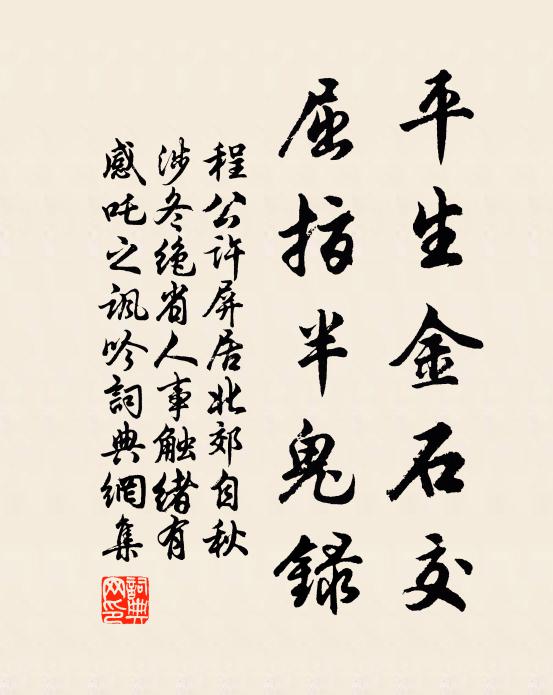 平生金石交
屈指半鬼録
程公许屏居北郊自秋
涉冬绝省人事触绪有
感吒之讽吟詞典網集
詞典网印